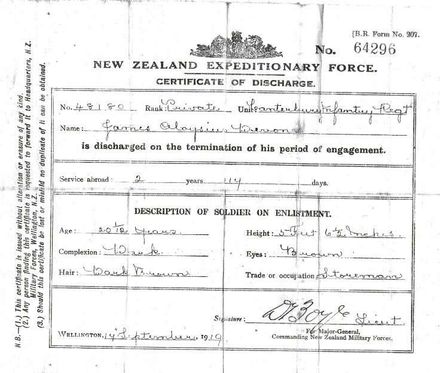 [B.R. Form No. 307.
No. 64296
NEW ZEALAND EXPEDITIONARY FORCE.
CERTIFICATE OF DISCHARGE.
No. 48180 Rank Private Unit Canterbury Infantry Regt
Name: James Aloysius
is discharged on the termination of his period of engagement.
Service abroad 2 years 114 days.
DESCRIPTION OF SOLDIER ON ENLISTMENT.
Age: 20 years Height: 5 feet 6½ inches
Complexion: Eyes: Brown
Hair: Dark Brown Trade or occupation Storeman
Signature: Lieut
For Major-General,
Commanding New Zealand Military Forces.
WELLINGTON, September 1919
N.B.—(1.) This certificate is issued without alteration or erasure of any kind.
(2.) Any person finding this certificate is requested to forward it to Headquarters, N.Z.
Military Forces, Wellington, N.Z.
(3.) Should this certificate be lost or mislaid no duplicate of it can be obtained.